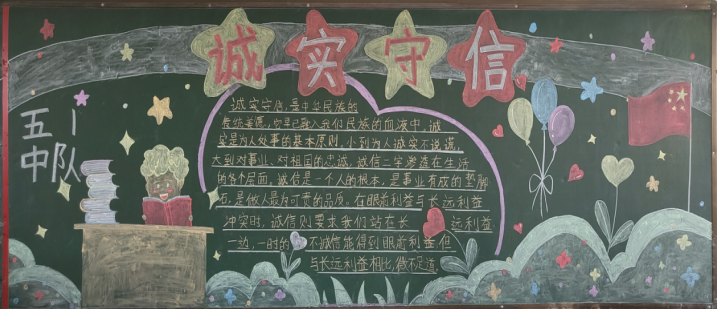 诚实守信
五1
中队
诚实守信，是中华民族的
传统美德，它早已融入我们民族的血液中。诚
实是为人处事的基本原则，小到为人诚实不说谎，
大到对事业、对祖国的忠诚。诚信二字渗透在生活
的各个层面。诚信是一个人的根本，是事业有成的垫脚
石，是做人最为可贵的品质。在眼前利益与长远利益
冲突时，诚信则要求我们站在长远利益
一边，一时的不诚信能得到眼前利益，但
与长远利益相比，微不足道。